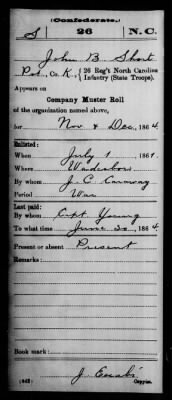 (Confederate.)
S 26 N.C.
John B Short
Pvt., Co. K, 26 Reg't North Carolina
Infantry (State Troops).
Appears on
Company Muster Roll
of the organization named above,
for Nov & Dec, 1864.
Enlisted:
When July 1, 1861.
Where Wadesboro
By whom J. C.
Period War
Last paid:
By whom Capt Young
To what time June 30, 1864.
Present or absent Present
Remarks:
Book mark:
(642) J.
Copyist.